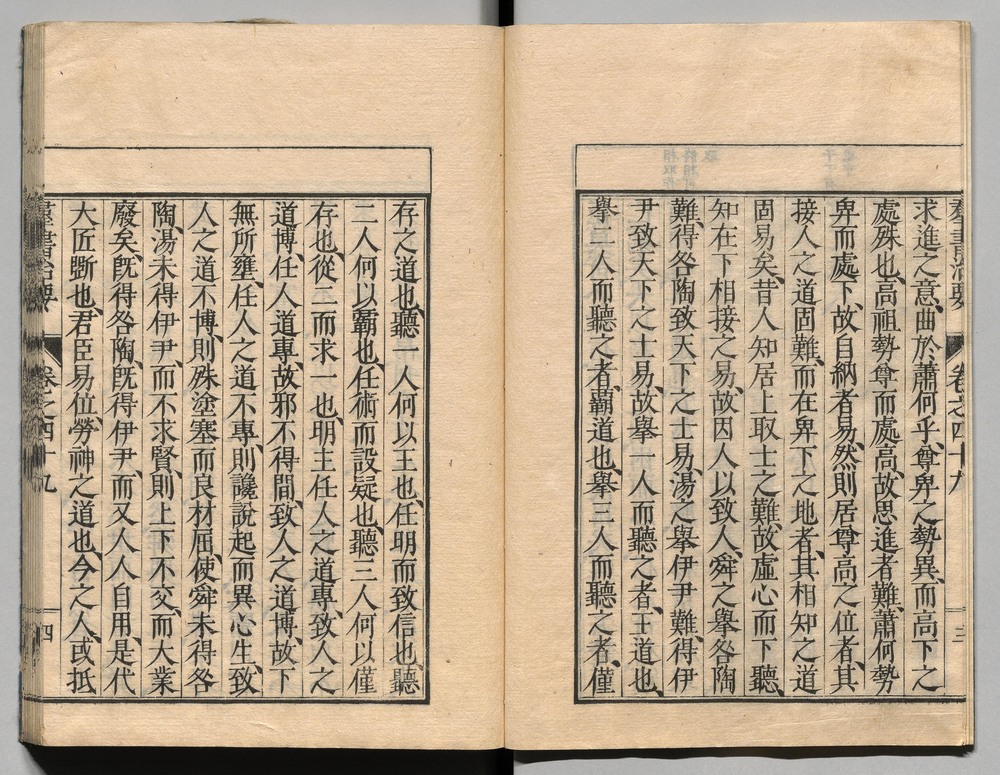 羣書治要 卷之四十九 三
求進之意、曲於蕭何乎、尊卑之勢異、而高下之
處殊也、高祖勢尊而處高、故思進者難、蕭何勢
卑而處下、故自納者易、然則居尊高之位者、其
接人之道固難、而在卑下之地者、其相知之道
固易矣、昔人知居上取士之難、故虛心而下聽、
知在下相接之易、故因人以致人、舜之舉咎陶
難、得咎陶致天下之士易、湯之舉伊尹難、得伊
尹致天下之士易、故舉一人而聽之者、王道也、
舉二人而聽之者、霸道也、舉三人而聽之者、僅
存之道也、聽一人何以王也、任明而致信也、聽
二人何以霸也、任術而設疑也、聽三人何以僅
存也、從二而求一也、明主任人之道專、致人之
道博、任人道專、故邪不得間、致人之道博、故下
無所壅、任人之道不專、則讒說起而異心生、致
人之道不博、則殊塗塞而良材屈、使舜未得咎
陶、湯未得伊尹、而不求賢、則上下不交、而大業
廢矣、旣得咎陶、旣得伊尹、而又人人自用、是代
大匠斲也、君臣易位、勞神之道也、今之人、或抵
羣書治要 卷之四十九 四